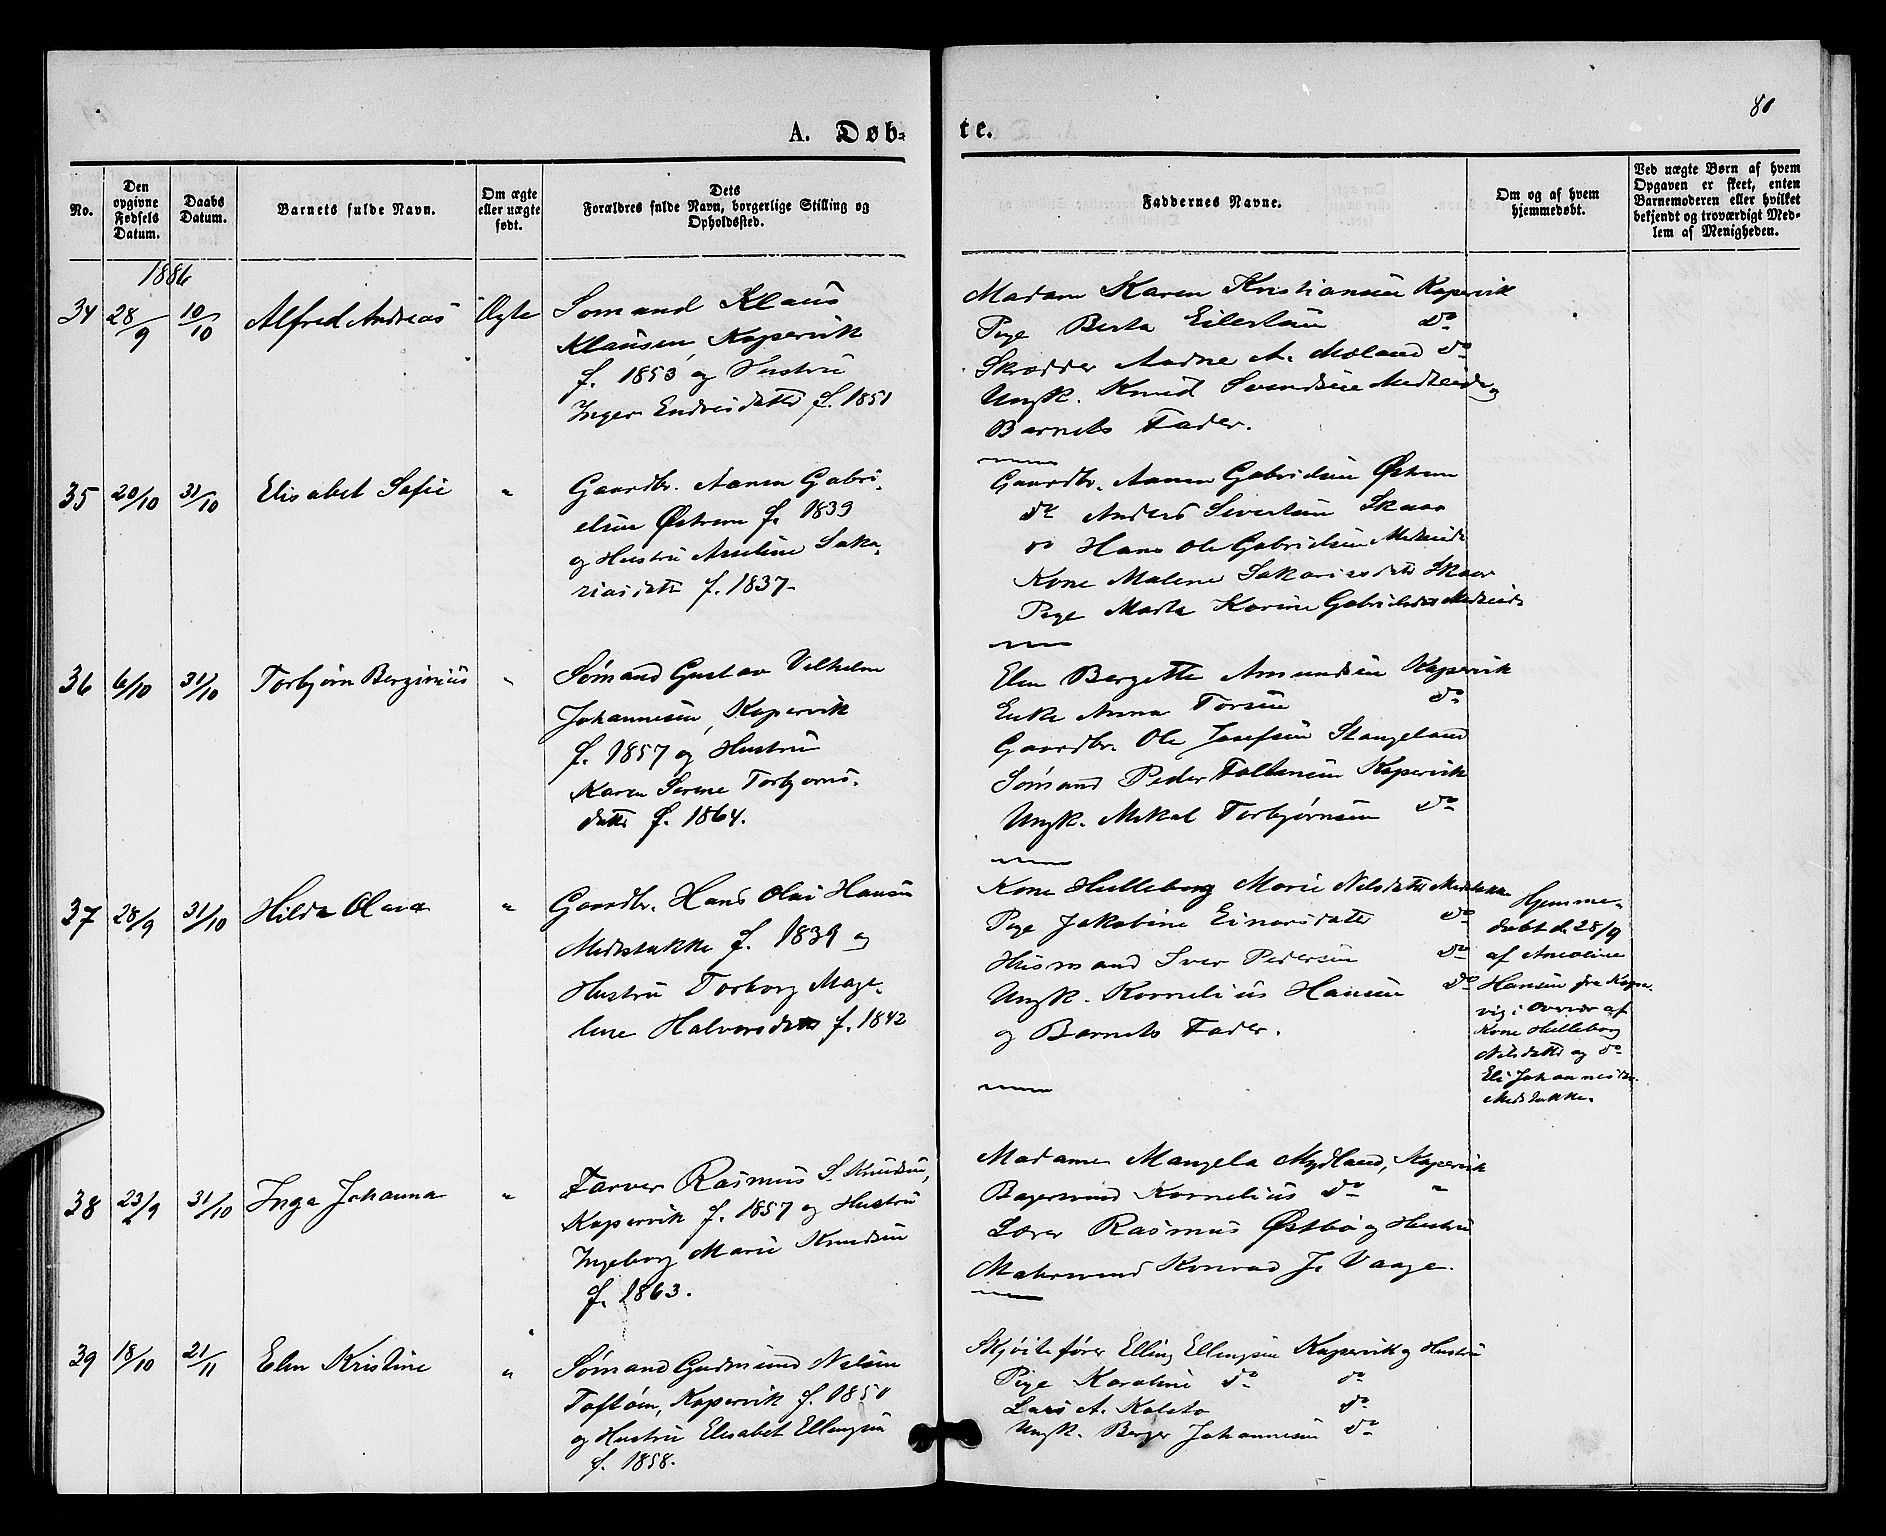 80
A. Døb-
te.
No.
Den opgivne Fødsels Datum.
Daabs Datum.
Barnets fulde Navn.
Om ægte eller uægte født.
Dets Forældres fulde Navn, borgerlige Stilling og Opholdssted.
Faddernes Navne.
Om og af hvem hjemmedøbt.
Ved uægte Børn af hvem Opgaven er skeet, enten Barnemoderen eller hvilket bekjendt og troværdigt Medlem af Menigheden.
1886
34 28/9 10/10 Alfred Andreas Ægte
Sømand Klaus
Klausen Kopervik
f. 1853 og Hustru
Inger Endresdatter f. 1851
Madam Karen Kristiansen Kopervik
Pige Berta Eilertsen do
Skrædder Aadne A. Møland do
Ungk. Knud Svendsen Medheide og
Barnets Fader.
35 20/10 31/10 Elisabet Sofie "
Gaardbr. Aanen Gabri-
elsen Østrem f. 1839
og Hustru Aseline Saka-
riasdatte f. 1837.
Gaardbr. Aanen Gabrielsen Østrem
do Anders Sivertsen Skaar
do Hans Ole Gabrielsen Medheide
Kone Malene Sakariasdatte Skaar
Pige Marta Korine Gabrielsdatter Medheide
36 6/10 31/10 Torbjørn Berginius "
Sømand Gustav Vilhelm
Johannesen, Kopervik
f. 1857 og Hustru
Karen Serene Torbjørns-
datte f. 1864.
Elen Bergette Amundsen Kopervik
Enke Anna Torsen do
Gaardbr. Ole Josefsen Stangeland
Sømand Peder Faltinsen Kopervik
Ungk. Mikal Torbjørnsen do
37 28/9 31/10 Hilda Olava "
Gaardbr. Hans Olai Hansen
Midstokke f. 1839 og
Hustru Torborg Mage-
lene Halvorsdatte f. 1842
Kone Helleborg Marie Nilsdatte Medstokke
Pige Jakobine Einarsdatte do
Husmand Iver Pedersen do
Ungk. Kornelius Hansen do
og Barnets Fader.
Hjemme-
døbt d. 28/9
af
Hansen fra Koper-
vig i Overvær af
Kone Helleborg
Nilsdatte og do
Eli Johannesdtr.
Medstokke.
38 23/9 31/10 Inga Johanna "
Farver Rasmus S. Knudsen,
Kopervik f. 1857 og Hustru
Ingeborg Marie Knudsen
f. 1863.
Madame Mangela Mydland, Kopervik
Bagersvend Kornelius do "
Lærer Rasmus Østbø og Hustru
Malersvend Konrad J. Vaage.
39 18/10 21/11 Elen Kristine "
Sømand Gudmund Nelsen
Toftøen, Kopervik f. 1851
og Hustru Elisabet Ellingsen
f. 1858.
Skjøitefører Elling Ellingsen Kopervik og Hustru
Pige Karoline do do
Lars A. Kolstø do
Ungk. Berger Johannesen do